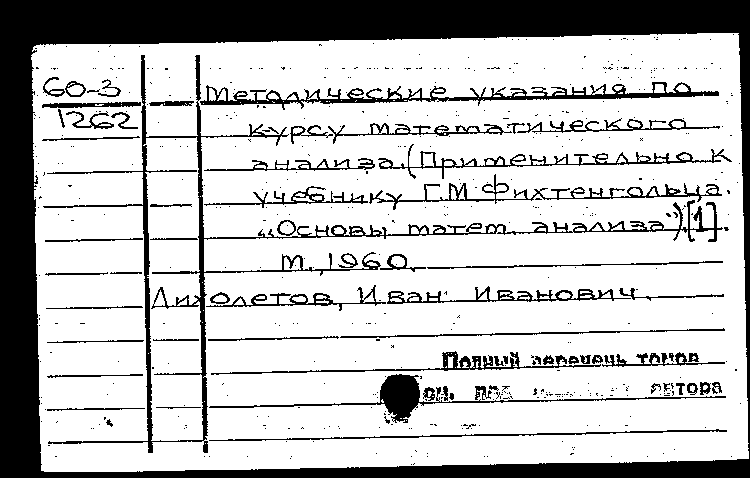 60-3
1262
Методические указания по
курсу математического
анализа. (Применительно к
учебнику Г.М. Фихтенгольца.
„Основы матем. анализа"). [1].
М., 1960.
Лихолетов, Иван Иванович.
Полный перечень томов
см. под автора